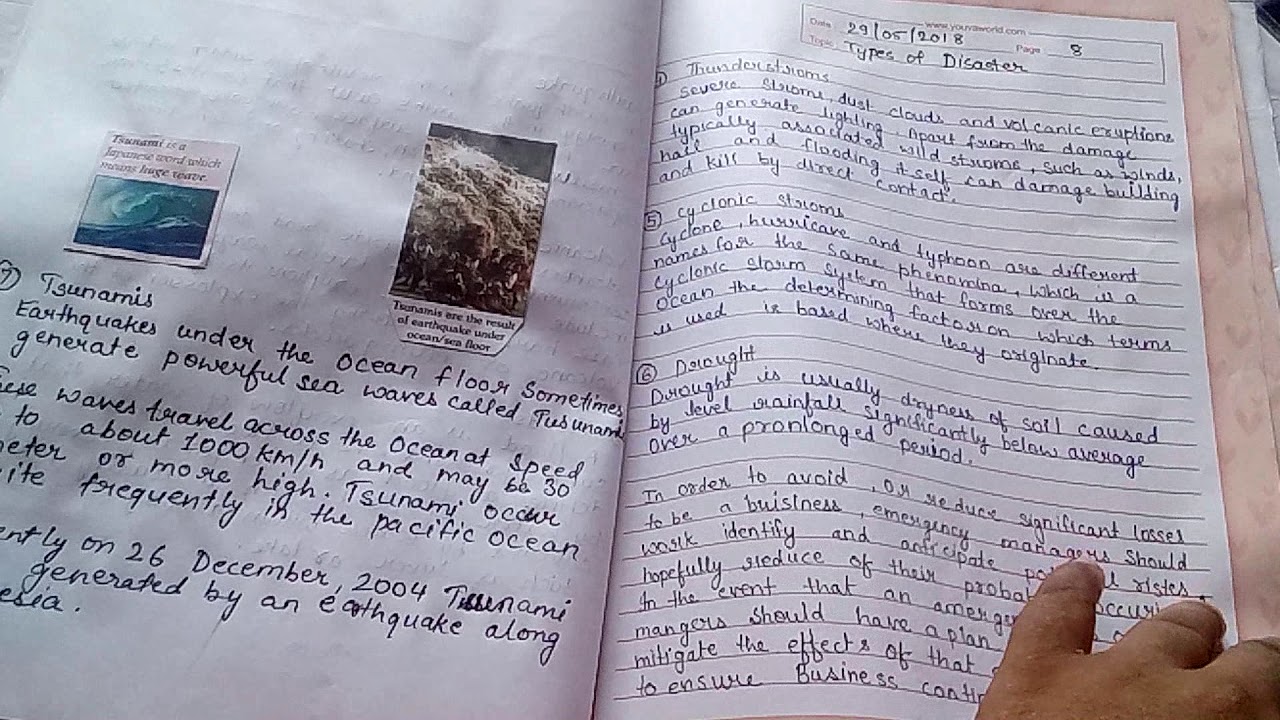 Tsunami is a
Japanese word which
means huge wave.
Tsunamis are the result
of earthquake under
ocean/sea floor
7 Tsunamis
Earthquakes under the ocean floor Sometimes
generate powerful sea waves called Tusunami
waves travel across the ocean at speed
to about 1000 km/h and may be 30
or more high. Tsunami occur
frequently in the pacific ocean.
on 26 December, 2004 Tsunami
generated by an earthquake along
Date 29/05/2018 www.youvaworld.com Page 8
Topic Types of Disaster
Thunderstroms
Severe stroms, dust clouds and volcanic eruptions
can generate lighting. Apart from the damage
typically associated wild stroms, such as winds,
hail and flooding itself can damage building
and kill by direct contact.
5 Cyclonic stroms
Cyclone, hurricane and typhoon are different
names for the same phenamina, which is a
cyclonic storm system that forms over the
ocean the determining factor on which terms
is used is based where they originate.
6 Drought
Drought is usually dryness of soil caused
by level rainfall significantly below average
over a pronlonged period.
In order to avoid, or reduce significant losses
to be a buislness, emergency managers should
work identify and anticipate ristes.
hopefully reduce of their
In the event that an
mangers should have a plan
mitigate the effects of that
to ensure Business